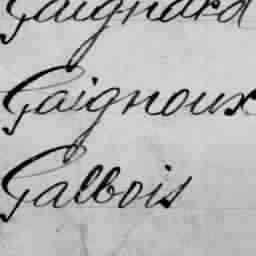 Gaignard
Gaignoux
Galbois